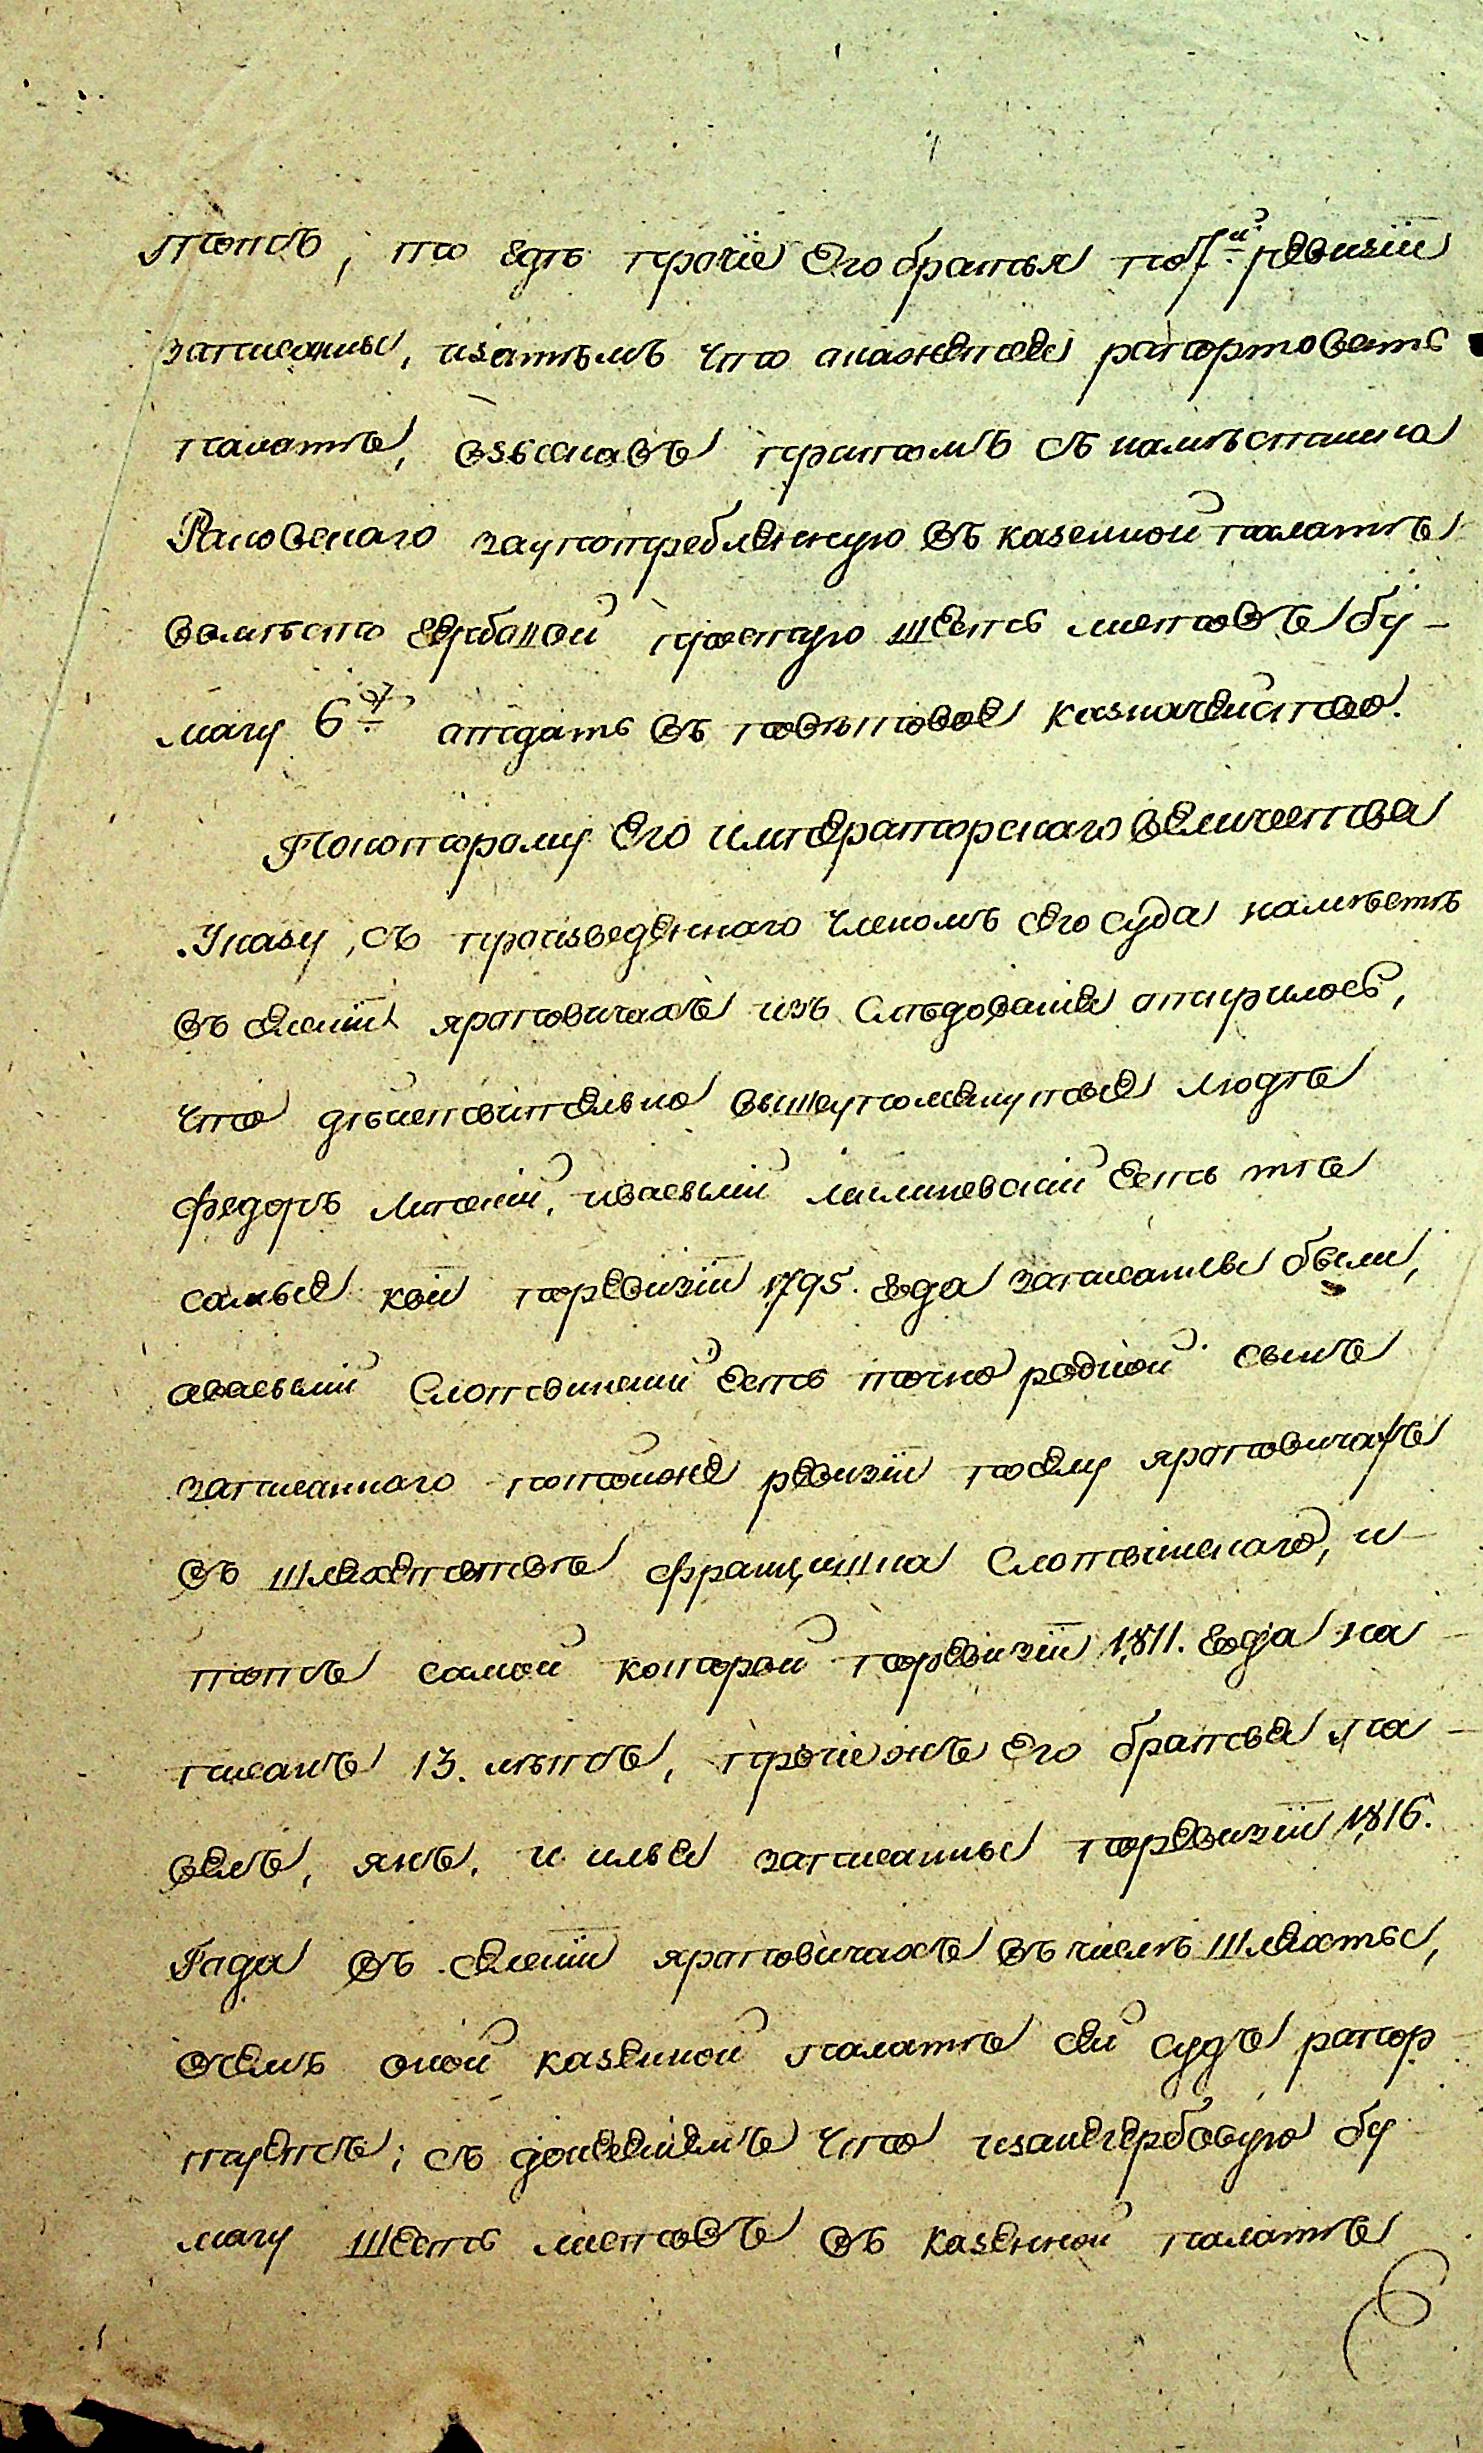 тотъ, то гдѣ прочіе его братья по 7й ревизіи
записаны, изатѣмъ что окажется рапортовать
палатѣ, взыскавъ притомъ съ помѣщика
заупотребленную въ казенной палатѣ
вмѣсто гербовой простую шесть листовъ бу-
магу 6 отдать въ повѣтовое казначейство.
Покоторому Его императорскаго величества
Указу, съ произведеннаго членомъ сего суда намѣстѣ
въ селеніи яроповичахъ изъ Слѣдованія открилось,
что дѣйствительно вышеупомянутые людѣ
федоръ Липскій, иваскій есть тѣ
самые кои поревизіи 1795. года записаны были,
Слотвинскій есть точно родной сынъ
записаннаго потойже ревизіи поселу яроповичахъ
въ шляхетствѣ францишка Слотвинскаго, и
тотъ самой которой поревизіи 1811. года на
писанъ 13. лѣтъ, прочіе жъ его братья па
велъ, янъ, и илья записанны поревизіи 1816.
Года въ селеніи яроповичахъ въ числѣ шляхты,
очемъ оной казенной палатѣ сей судъ рапор
туетъ; съ донесеніемъ что изанегербовую бу
магу шесть листовъ въ казенной палатѣ